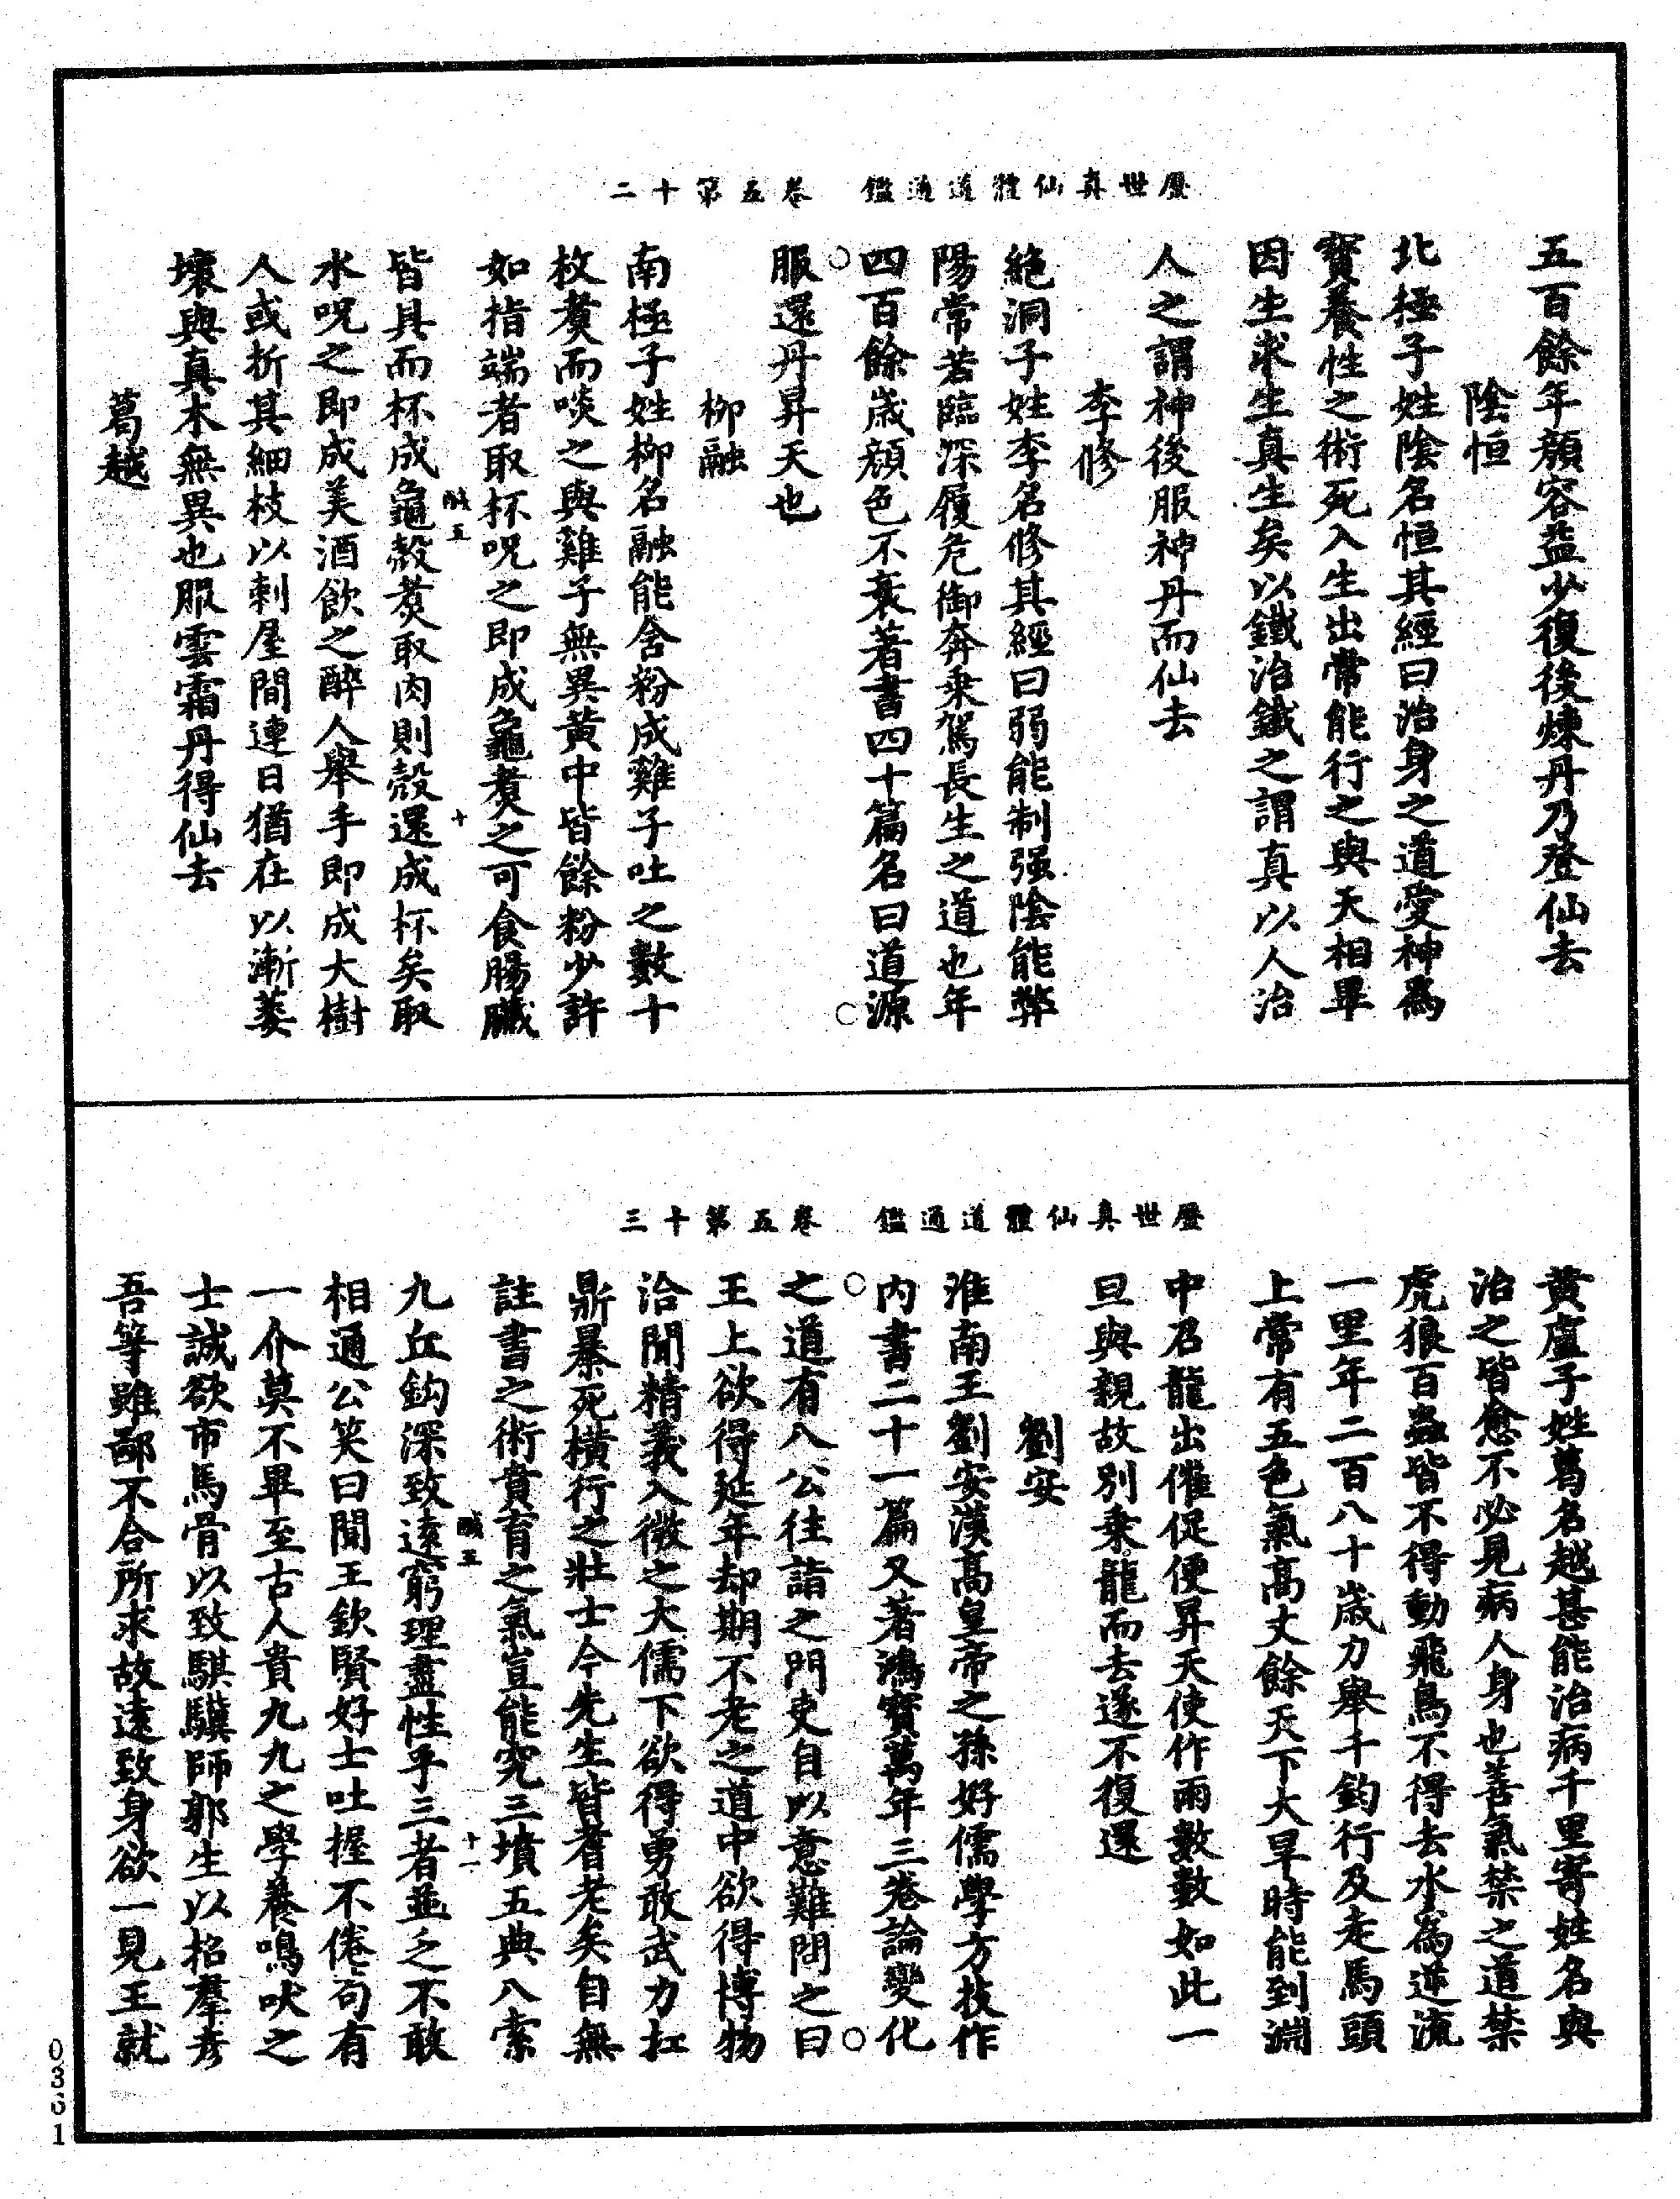 歷世真仙體道通鑑　卷五第十二
五百餘年顏容益少復後煉丹乃登仙去
陰恒
北極子姓陰名恒其經曰治身之道愛神爲
寶養性之術死入生出常能行之與天相畢
因生求生真生矣以鐵治鐵之謂真以人治
人之謂神後服神丹而仙去
李修
絕洞子姓李名修其經曰弱能制强陰能弊
陽常若臨深履危御奔乘駕長生之道也年
四百餘歲顏色不衰著書四十篇名曰道源
服還丹昇天也
柳融
南極子姓柳名融能含粉成雞子吐之數十
枚煑而啖之與雞子無異黃中皆餘粉少許
如指端者取杯呪之即成龜煑之可食腸臟
皆具而杯成龜殼煑取肉則殼還成杯矣取
水呪之即成美酒飲之醉人舉手即成大樹
人或折其細枝以刺屋間連日猶在以漸萎
壞與真木無異也服雲霜丹得仙去
葛越
鹹五
十
歷世真仙體道通鑑　卷五第十三
黃盧子姓葛名越甚能治病千里寄姓名與
治之皆愈不必見病人身也善氣禁之道禁
虎狼百蟲皆不得動飛鳥不得去水爲逆流
一里年二百八十歲力舉千鈞行及走馬頭
上常有五色氣高丈餘天下大旱時能到淵
中召龍出催促便昇天使作雨數數如此一
旦與親故別乘龍而去遂不復還
劉安
淮南王劉安漢高皇帝之孫好儒學方技作
内書二十一篇又著鴻寶萬年三卷論變化
之道有八公往詣之門吏自以意難問之曰
王上欲得延年却期不老之道中欲得博物
洽聞精義入微之大儒下欲得勇敢武力扛
鼎暴死橫行之壯士今先生皆耆老矣自無
註書之術賁育之氣豈能究三墳五典八索
九丘鈎深致遠窮理盡性乎三者並乏不敢
相通公笑曰聞王欽賢好士吐握不倦苟有
一介莫不畢至古人貴九九之學養鳴吠之
士誠欲市馬骨以致騏驥師郭生以招羣彥
吾等雖鄙不合所求故遠致身欲一見王就
鹹五
十一
0361